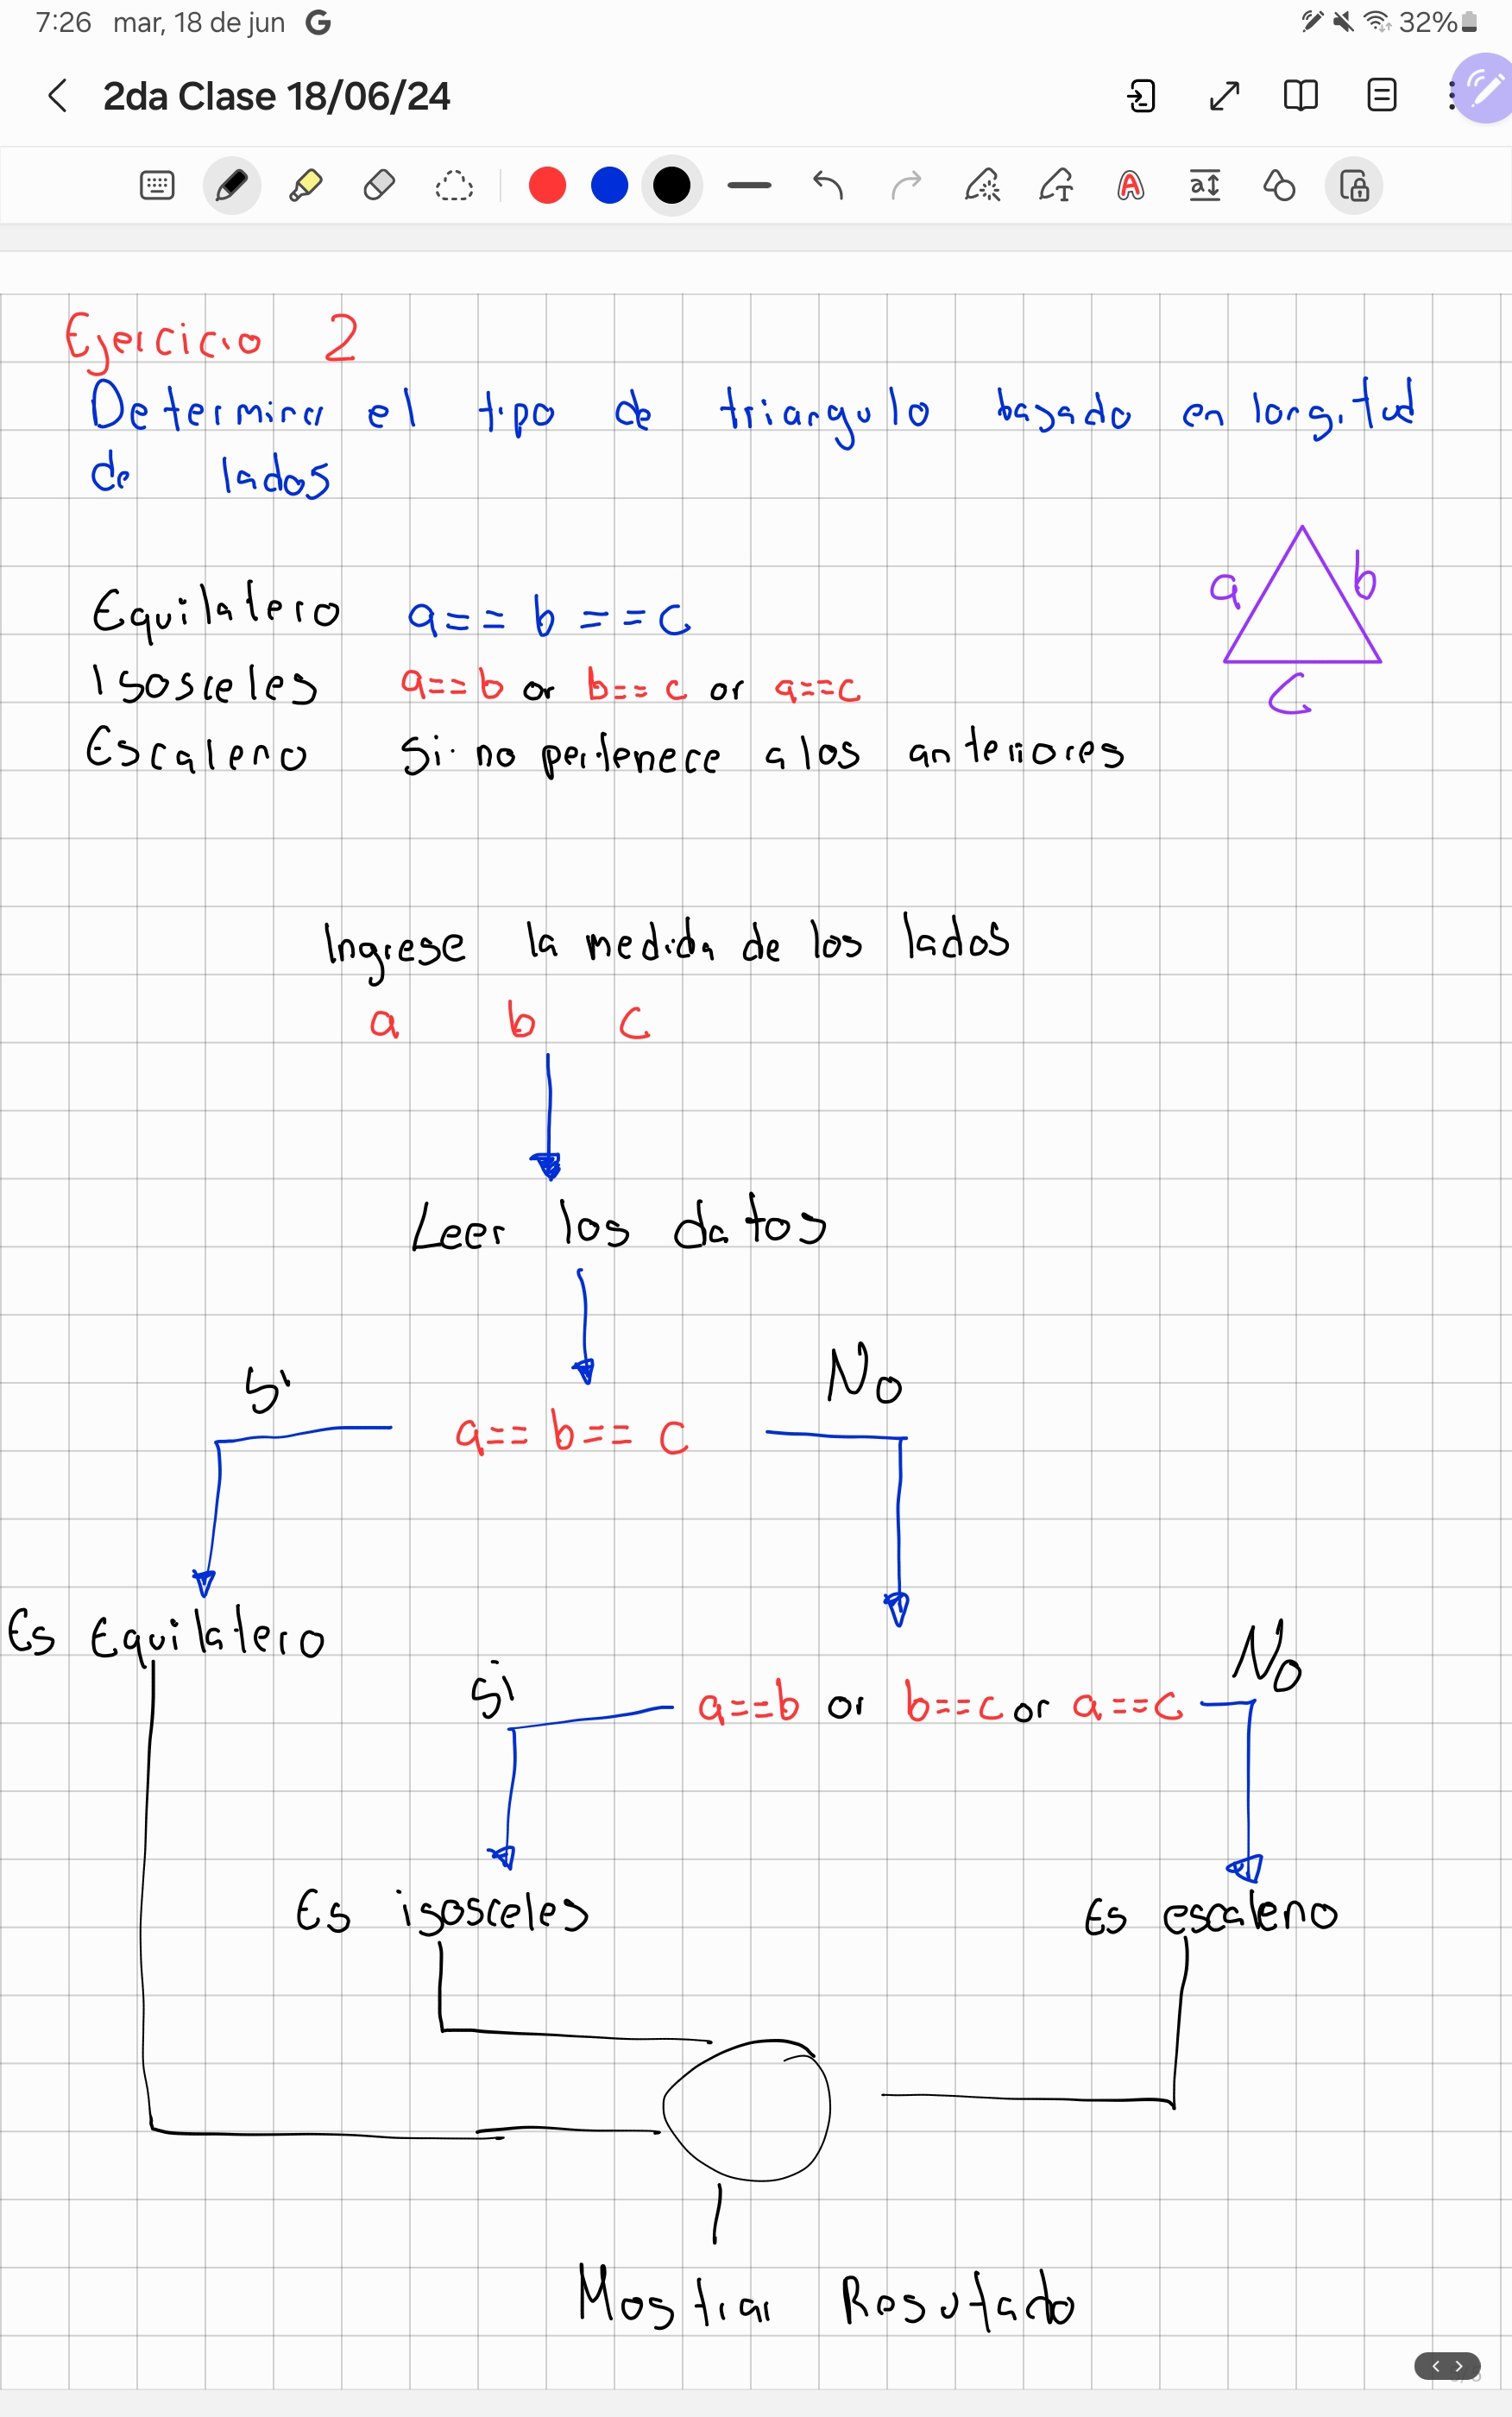 7:26 mar, 18 de jun G 32%
2da Clase 18/06/24
Ejercicio 2
Determinar el tipo de triangulo basado en longitud
de lados
a b
c
Equilatero a== b ==c
Isosceles a==b or b==c or a==c
Escaleno Si no pertenece a los anteriores
Ingrese la medida de los lados
a b c
Leer los datos
Si No
a== b== c
Es Equilatero
Si No
a==b or b==c or a==c
Es isosceles Es escaleno
Mostrar Resultado